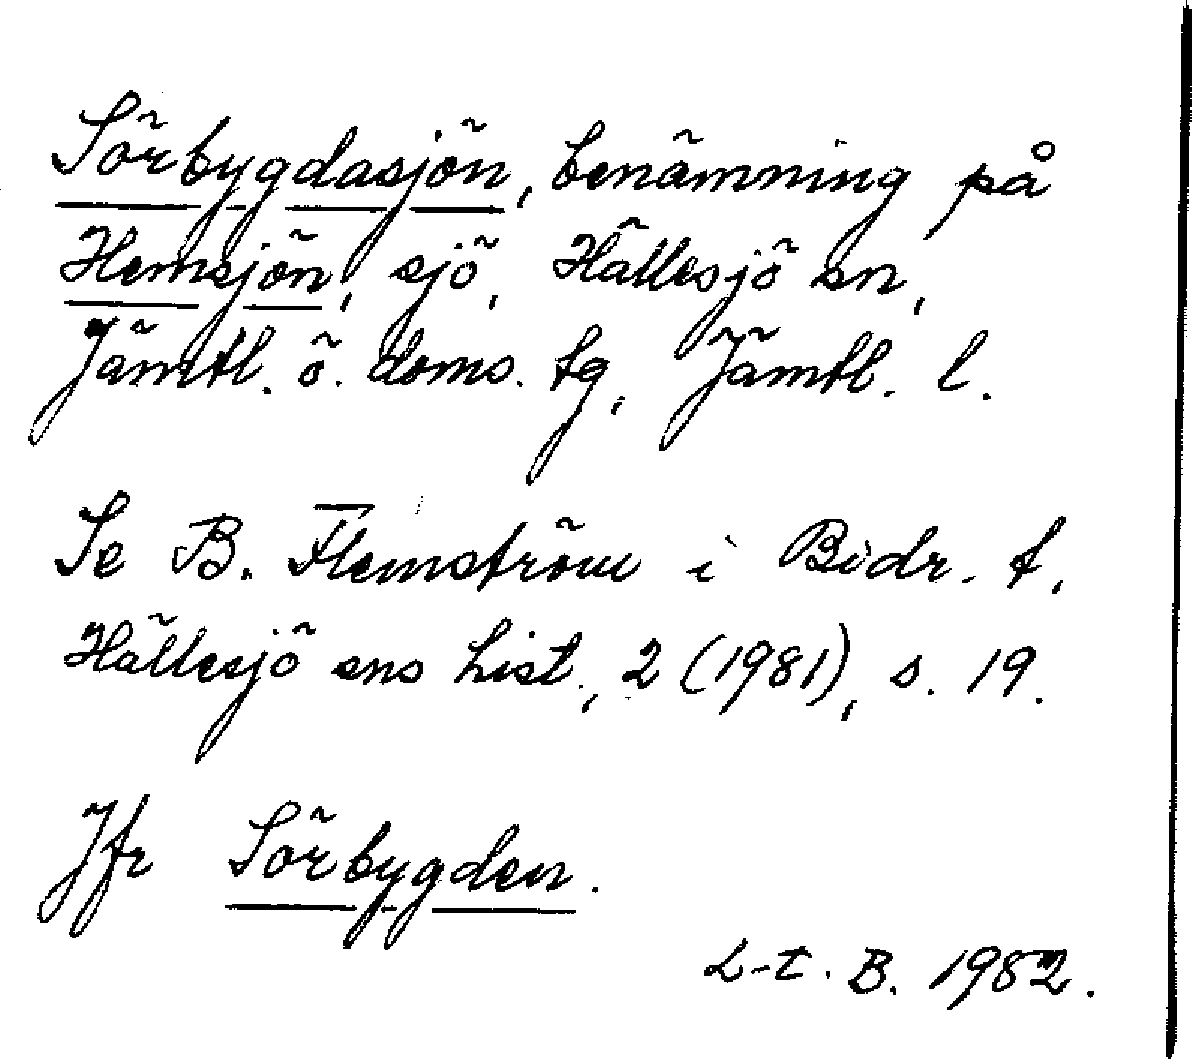 Sörbygdasjön, benämning på
Hemsjön, sjö, Hällesjö sn,
Jämtl. ö. doms. tg, Jämtl. l.
Se B. Flemström i Bidr. t.
Hällesjö sns hist., 2 (1981), s. 19.
Jfr Sörbygden.
L-t. B. 1982.